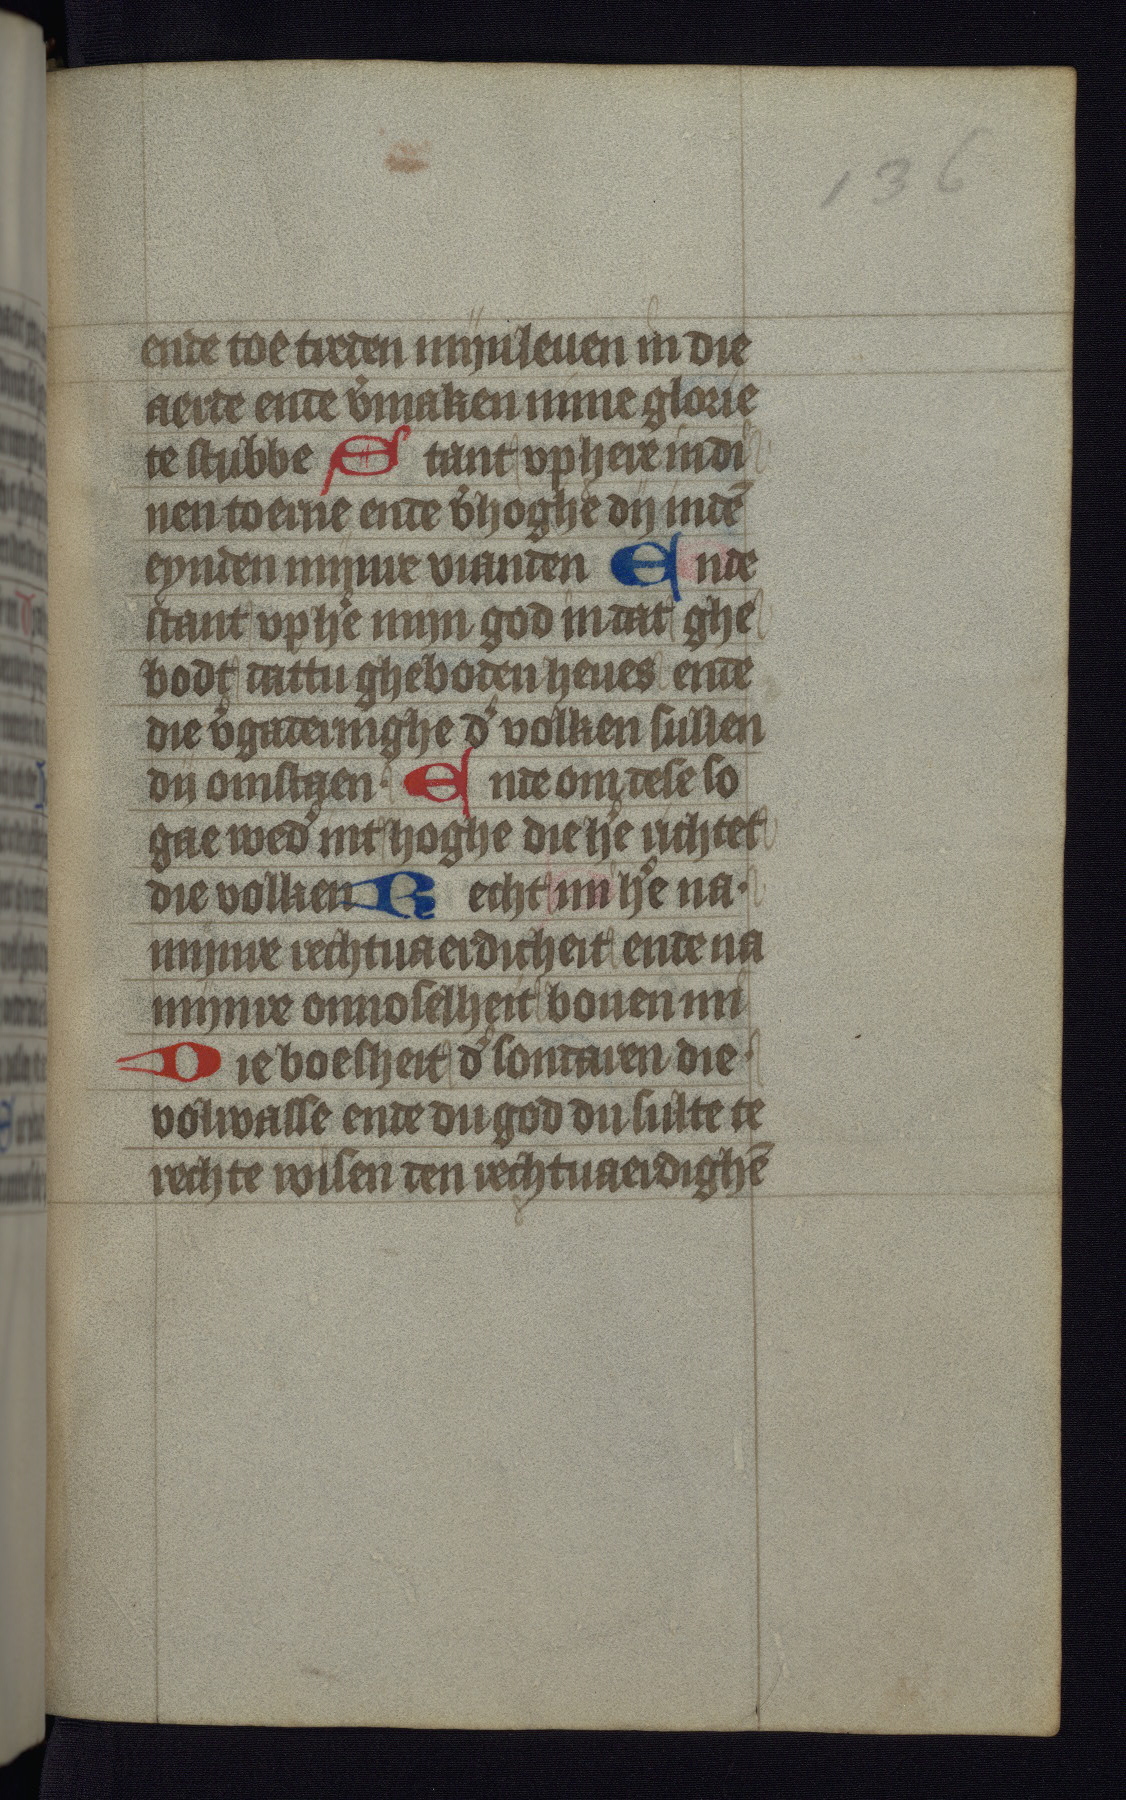 136
ende toe treden mijn leuen in die
aerde ende v̾maken mine glorie
te stubbe Stant vp here in di
nen toerne ende v̾hoghe dij in dē
eynden mijnre vianden Ende
stant vp h̾e mijn god in dat ghe
bodt dattu gheboden heues ende
die v̾gaderinghe d̾ volken sullen
dij omstaen· Ende om dese so
gae wed̾ int hoghe die h̾e richtet
die volken Recht mi h̾e na·
mijnre rechtuaerdicheit ende na
mijnre onnoselheit bouen mi
Die boesheit d̾ sondaren die·
volwasse ende du god du sulte te
rechte wisen den rechtuaerdighē